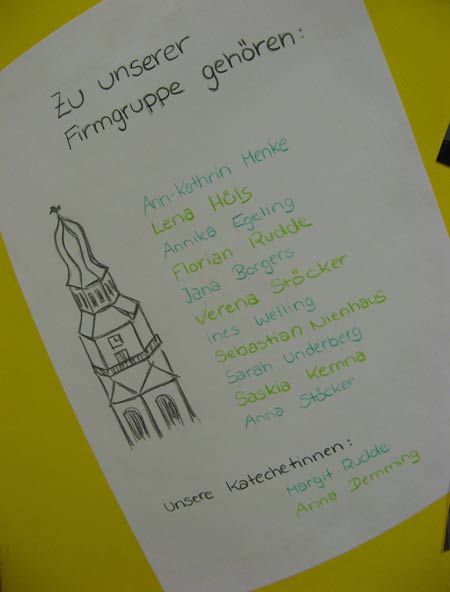 Zu unserer
Firmgruppe gehören:
Ann-Kathrin Menke
Lena Höls
Annika Egeling
Florian Rudde
Jana Borgers
Verena Stöcker
Ines Welling
Sebastian Nienhaus
Sarah Underberg
Saskia Kemna
Anna Stöcker
Unsere Katechetinnen:
Margit Rudde
Anna Demming